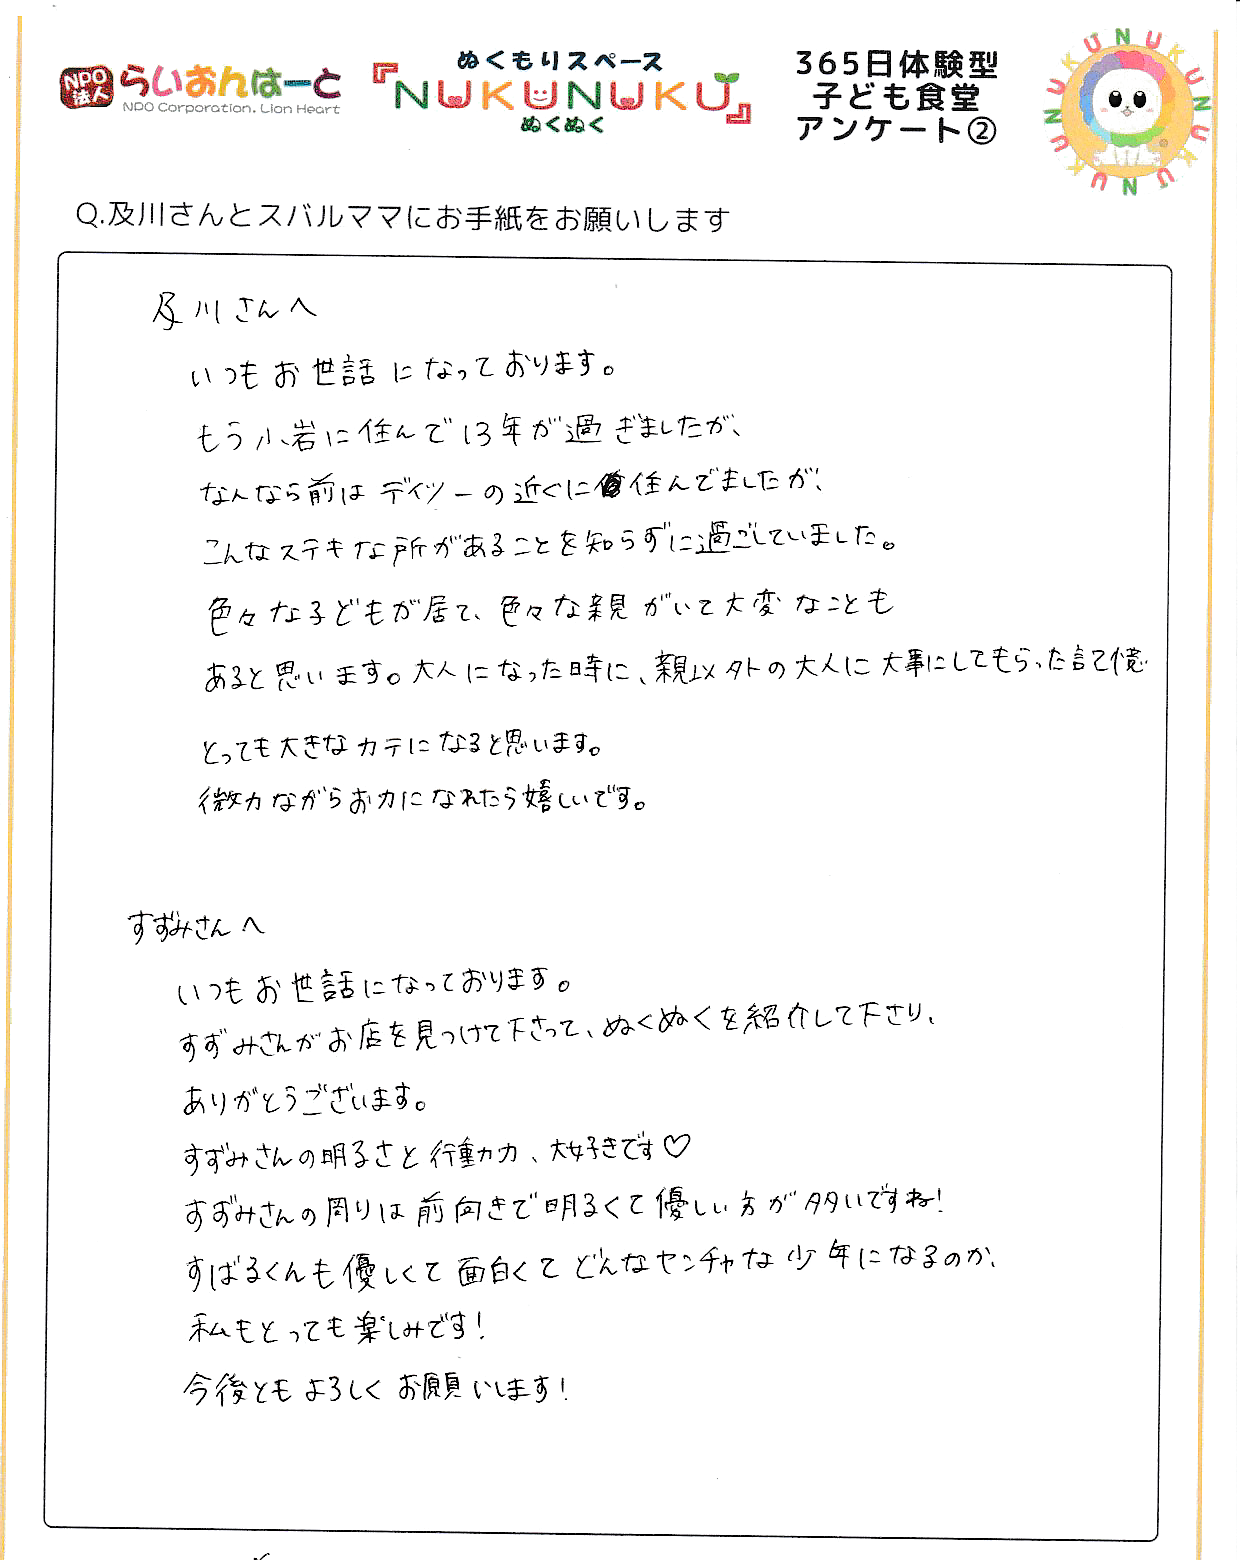 NPO法人 らいおんはーと
NPO Corporation. Lion Heart
ぬくもりスペース
『NUKUNUKU』
ぬくぬく
365日体験型
子ども食堂
アンケート②
NUKUNUKUNUKUNUKU
Q.及川さんとスバルママにお手紙をお願いします
及川さんへ
いつもお世話になっております。
もう小岩に住んで13年が過ぎましたが、
なんなら前はデイツーの近くに住んでましたが、
こんなステキな所があることを知らずに過ごしていました。
色々な子どもが居て、色々な親がいて大変なことも
あると思います。大人になった時に、親以外の大人に大事にしてもらった記憶
とっても大きなカテになると思います。
微力ながらお力になれたら嬉しいです。
すずみさんへ
いつもお世話になっております。
すずみさんがお店を見つけて下さって、ぬくぬくを紹介して下さり、
ありがとうございます。
すずみさんの明るさと行動力、大好きです♡
すずみさんの周りは前向きで明るくて優しい方が多いですね!
すばるくんも優しくて面白くてどんなヤンチャな少年になるのか、
私もとっても楽しみです!
今後ともよろしくお願いします!